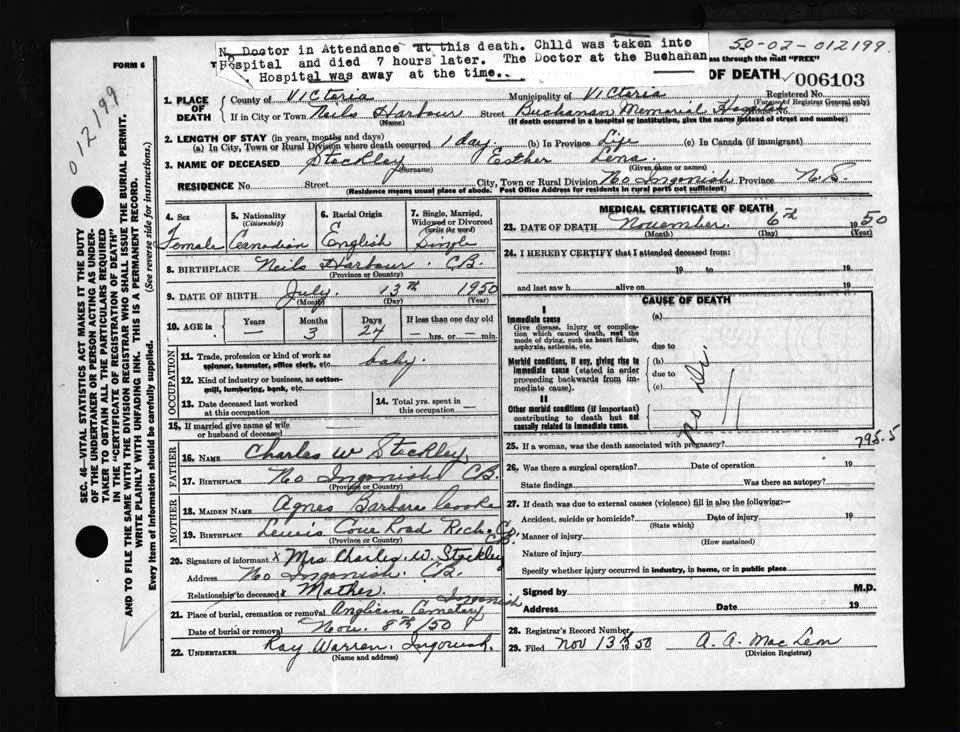 N. Doctor in Attendance at this death. Child was taken into
Hospital and died 7 hours later. The Doctor at the Buchanan
Hospital was away at the time..
50-02-012199.
FORM 6
pass through the mail "FREE"
OF DEATH 006103
012199
1. PLACE OF DEATH
County of Victoria Municipality of Victoria Registered No.
(For use of Registrar General only)
If in City or Town Neils Harbour Street Buchanan Memorial Hospital House No.
(Name) (If death occurred in a hospital or institution, give the name instead of street and number)
2. LENGTH OF STAY (in years, months and days)
(a) In City, Town or Rural Division where death occurred 1 day (b) In Province Life (c) In Canada (if immigrant)
3. NAME OF DECEASED Steckley Esther Lena.
(Surname) (Given name or names)
RESIDENCE No. Street City, Town or Rural Division No Ingonish Province N.S.
(Residence means usual place of abode. Post Office Address for residents in rural parts not sufficient)
4. Sex Female
5. Nationality (Citizenship) Canadian
6. Racial Origin English
7. Single, Married, Widowed or Divorced (write the word) Single
8. BIRTHPLACE Neils Harbour. CB.
(Province or Country)
9. DATE OF BIRTH July 13th 1950
(Month) (Day) (Year)
10. AGE in Years — Months 3 Days 24 If less than one day old — hrs. or — min.
OCCUPATION
11. Trade, profession or kind of work as spinner, teamster, office clerk, etc. baby.
12. Kind of industry or business, as cotton-mill, lumbering, bank, etc.
13. Date deceased last worked at this occupation
14. Total yrs. spent in this occupation —
15. If married give name of wife or husband of deceased
FATHER
16. NAME Charles W Steckley
17. BIRTHPLACE No Ingonish CB.
(Province or Country)
MOTHER
18. MAIDEN NAME Agnes Barbara Cooke
19. BIRTHPLACE Lewis Cove Road Rich. Co. CB.
(Province or Country)
20. Signature of informant x Mrs Charles W. Steckley
Address No Ingonish. CB.
Relationship to deceased x Mother.
21. Place of burial, cremation or removal Anglican Cemetary Ingonish
Date of burial or removal Nov. 8th /50
22. UNDERTAKER Roy Warren. Ingonish.
(Name and address)
MEDICAL CERTIFICATE OF DEATH
23. DATE OF DEATH November 6th 1950
(Month) (Day) (Year)
24. I HEREBY CERTIFY that I attended deceased from:
19 to 19
and last saw h alive on 19
CAUSE OF DEATH
I
Immediate cause
Give disease, injury or complication which caused death, not the mode of dying, such as heart failure, asphyxia, asthenia, etc.
(a)
due to
Morbid conditions, if any, giving rise to immediate cause (stated in order proceeding backwards from immediate cause).
(b)
due to
(c)
II
Other morbid conditions (if important) contributing to death but not causally related to immediate cause.
no Dr.
795.5
25. If a woman, was the death associated with pregnancy?
26. Was there a surgical operation? Date of operation 19
State findings Was there an autopsy?
27. If death was due to external causes (violence) fill in also the following:—
Accident, suicide or homicide? Date of injury 19
(State which)
Manner of injury
(How sustained)
Nature of injury
Specify whether injury occurred in industry, in home, or in public place
Signed by M.D.
Address Date 19
28. Registrar's Record Number
29. Filed Nov 13th 1950 A. A. Mac Lem
(Division Registrar)
SEC. 46—VITAL STATISTICS ACT MAKES IT THE DUTY
OF THE UNDERTAKER OR PERSON ACTING AS UNDER-
TAKER TO OBTAIN ALL THE PARTICULARS REQUIRED
IN THE "CERTIFICATE OF REGISTRATION OF DEATH"
AND TO FILE THE SAME WITH THE DIVISION REGISTRAR WHO SHALL ISSUE THE BURIAL PERMIT.
WRITE PLAINLY WITH UNFADING INK. THIS IS A PERMANENT RECORD.
Every item of information should be carefully supplied. (See reverse side for instructions.)